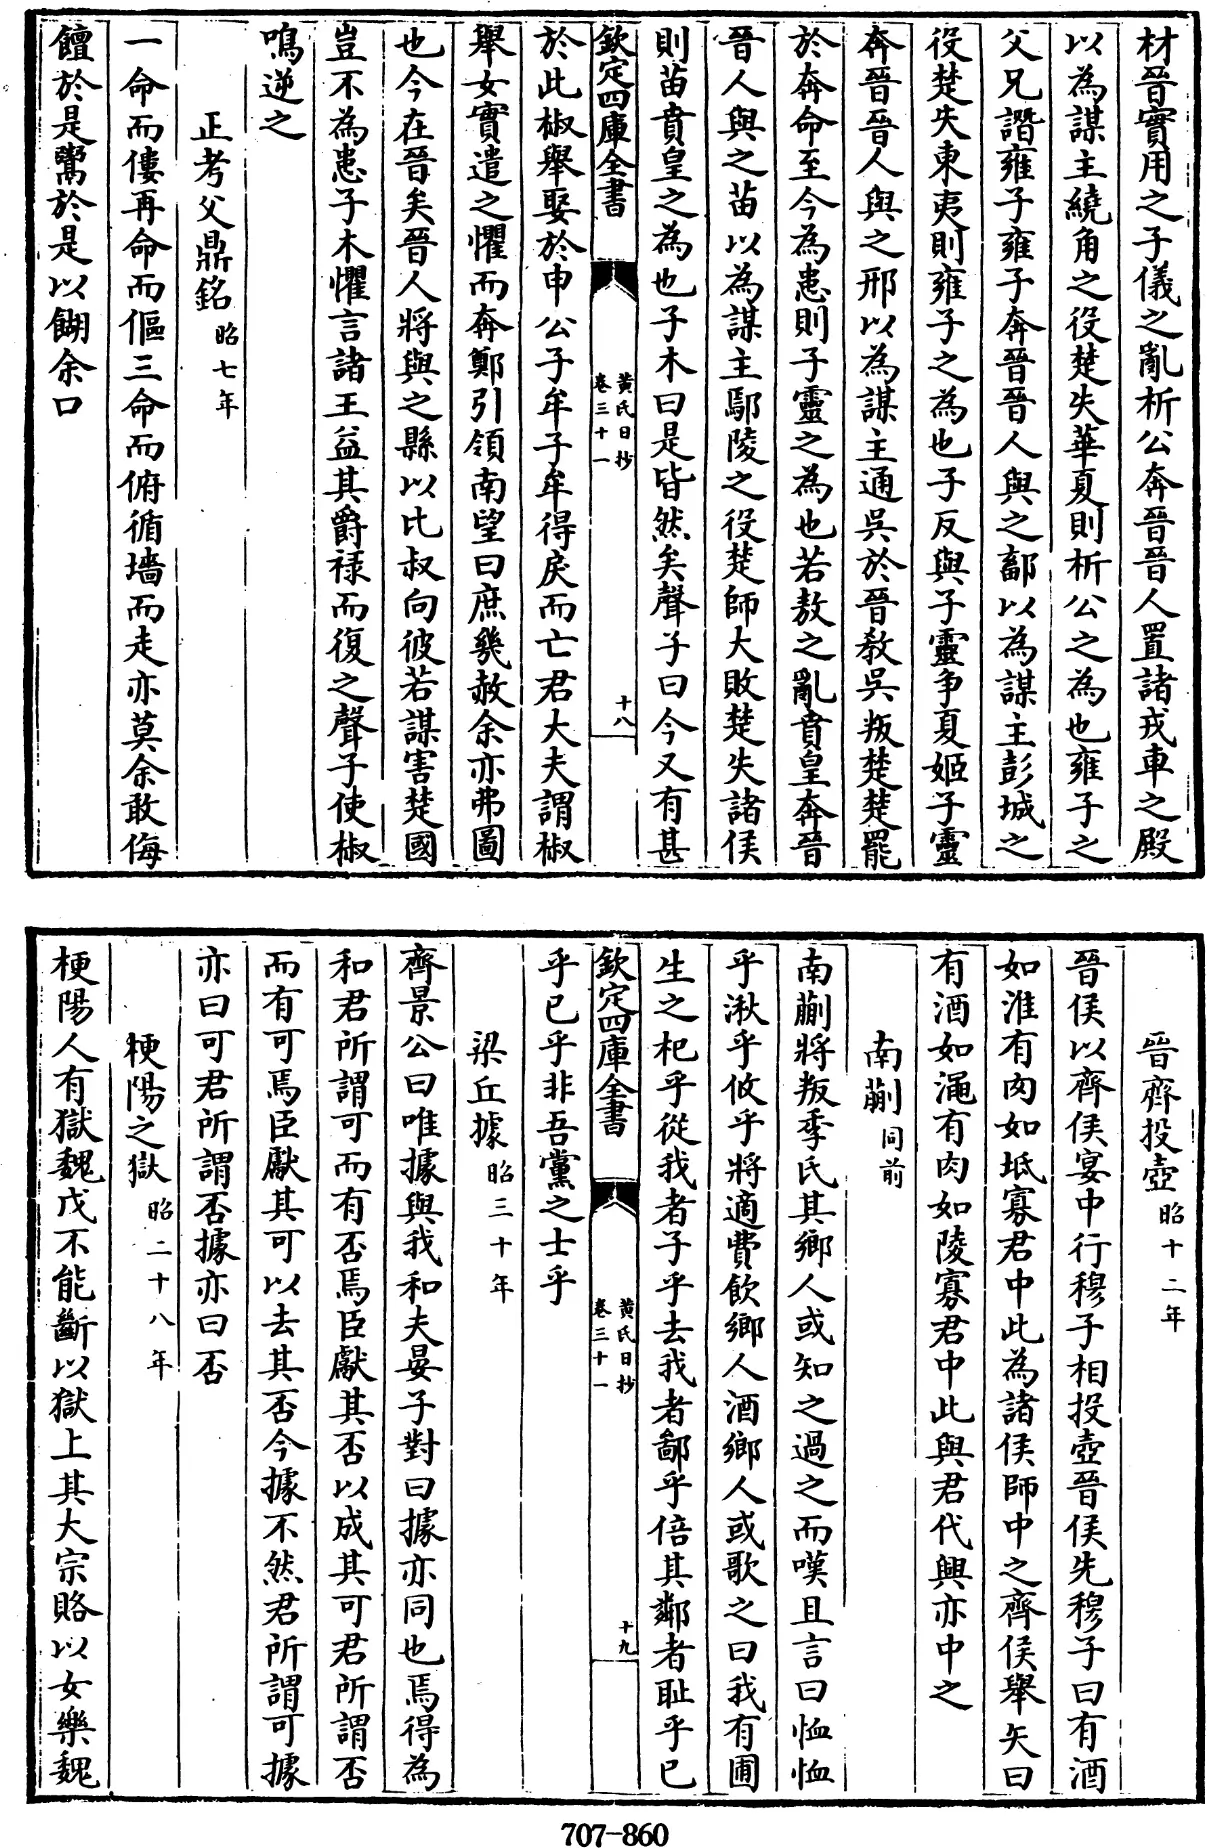 材晉實用之子儀之亂析公奔晉晉人置諸戎車之殿
以為謀主繞角之役楚失華夏則析公之為也雍子之
父兄譖雍子雍子奔晉晉人與之鄐以為謀主彭城之
役楚失東夷則雍子之為也子反與子靈争夏姬子靈
奔晉晉人與之邢以為謀主通吳於晉教吳叛楚楚罷
於奔命至今為患則子靈之為也若敖之亂賁皇奔晉
晉人與之苗以為謀主鄢陵之役楚師大敗楚失諸侯
則苗賁皇之為也子木曰是皆然矣聲子曰今又有甚
欽定四庫全書
黄氏日抄
卷三十一
十八
於此椒舉娶於申公子牟子牟得戾而亡君大夫謂椒
舉女實遣之懼而奔鄭引領南望曰庶幾赦余亦弗圖
也今在晉矣晉人將與之縣以比叔向彼若謀害楚國
豈不為患子木懼言諸王益其爵禄而復之聲子使椒
鳴逆之
正考父鼎銘昭七年
一命而僂再命而傴三命而俯循墻而走亦莫余敢侮
饘於是鬻於是以餬余口
晉齊投壺昭十二年
晉侯以齊侯宴中行穆子相投壺晉侯先穆子曰有酒
如淮有肉如坻寡君中此為諸侯師中之齊侯舉矢曰
有酒如澠有肉如陵寡君中此與君代興亦中之
南蒯同前
南蒯將叛季氏其鄉人或知之過之而嘆且言曰恤恤
乎湫乎攸乎將適費飲鄉人酒鄉人或歌之曰我有圃
生之杞乎從我者子乎去我者鄙乎倍其鄰者恥乎已
欽定四庫全書
黄氏日抄
卷三十一
十九
乎已乎非吾黨之士乎
梁丘據昭三十年
齊景公曰唯據與我和夫晏子對曰據亦同也焉得為
和君所謂可而有否焉臣獻其否以成其可君所謂否
而有可焉臣獻其可以去其否今據不然君所謂可據
亦曰可君所謂否據亦曰否
梗陽之獄昭二十八年
梗陽人有獄魏戊不能斷以獄上其大宗賂以女樂魏
707-860